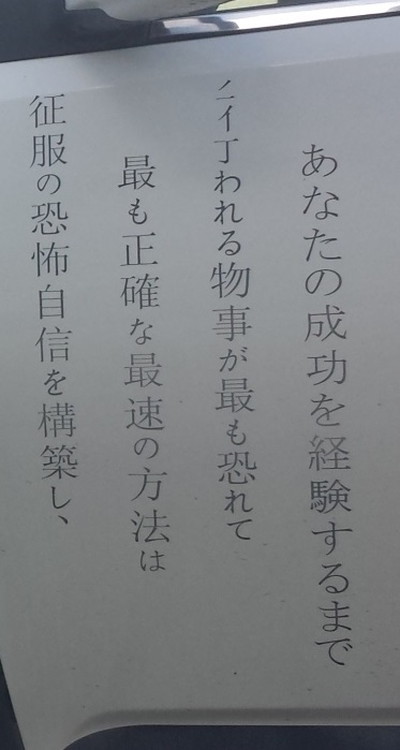 あなたの成功を経験するまで
ノニイ丁われる物事が最も恐れて
最も正確な最速の方法は
征服の恐怖自信を構築し、